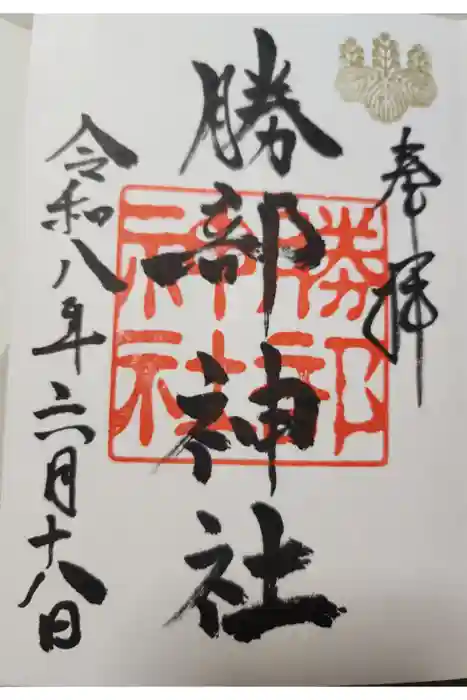 奉拝
勝部神社
勝部
神社
令和八年六月十八日